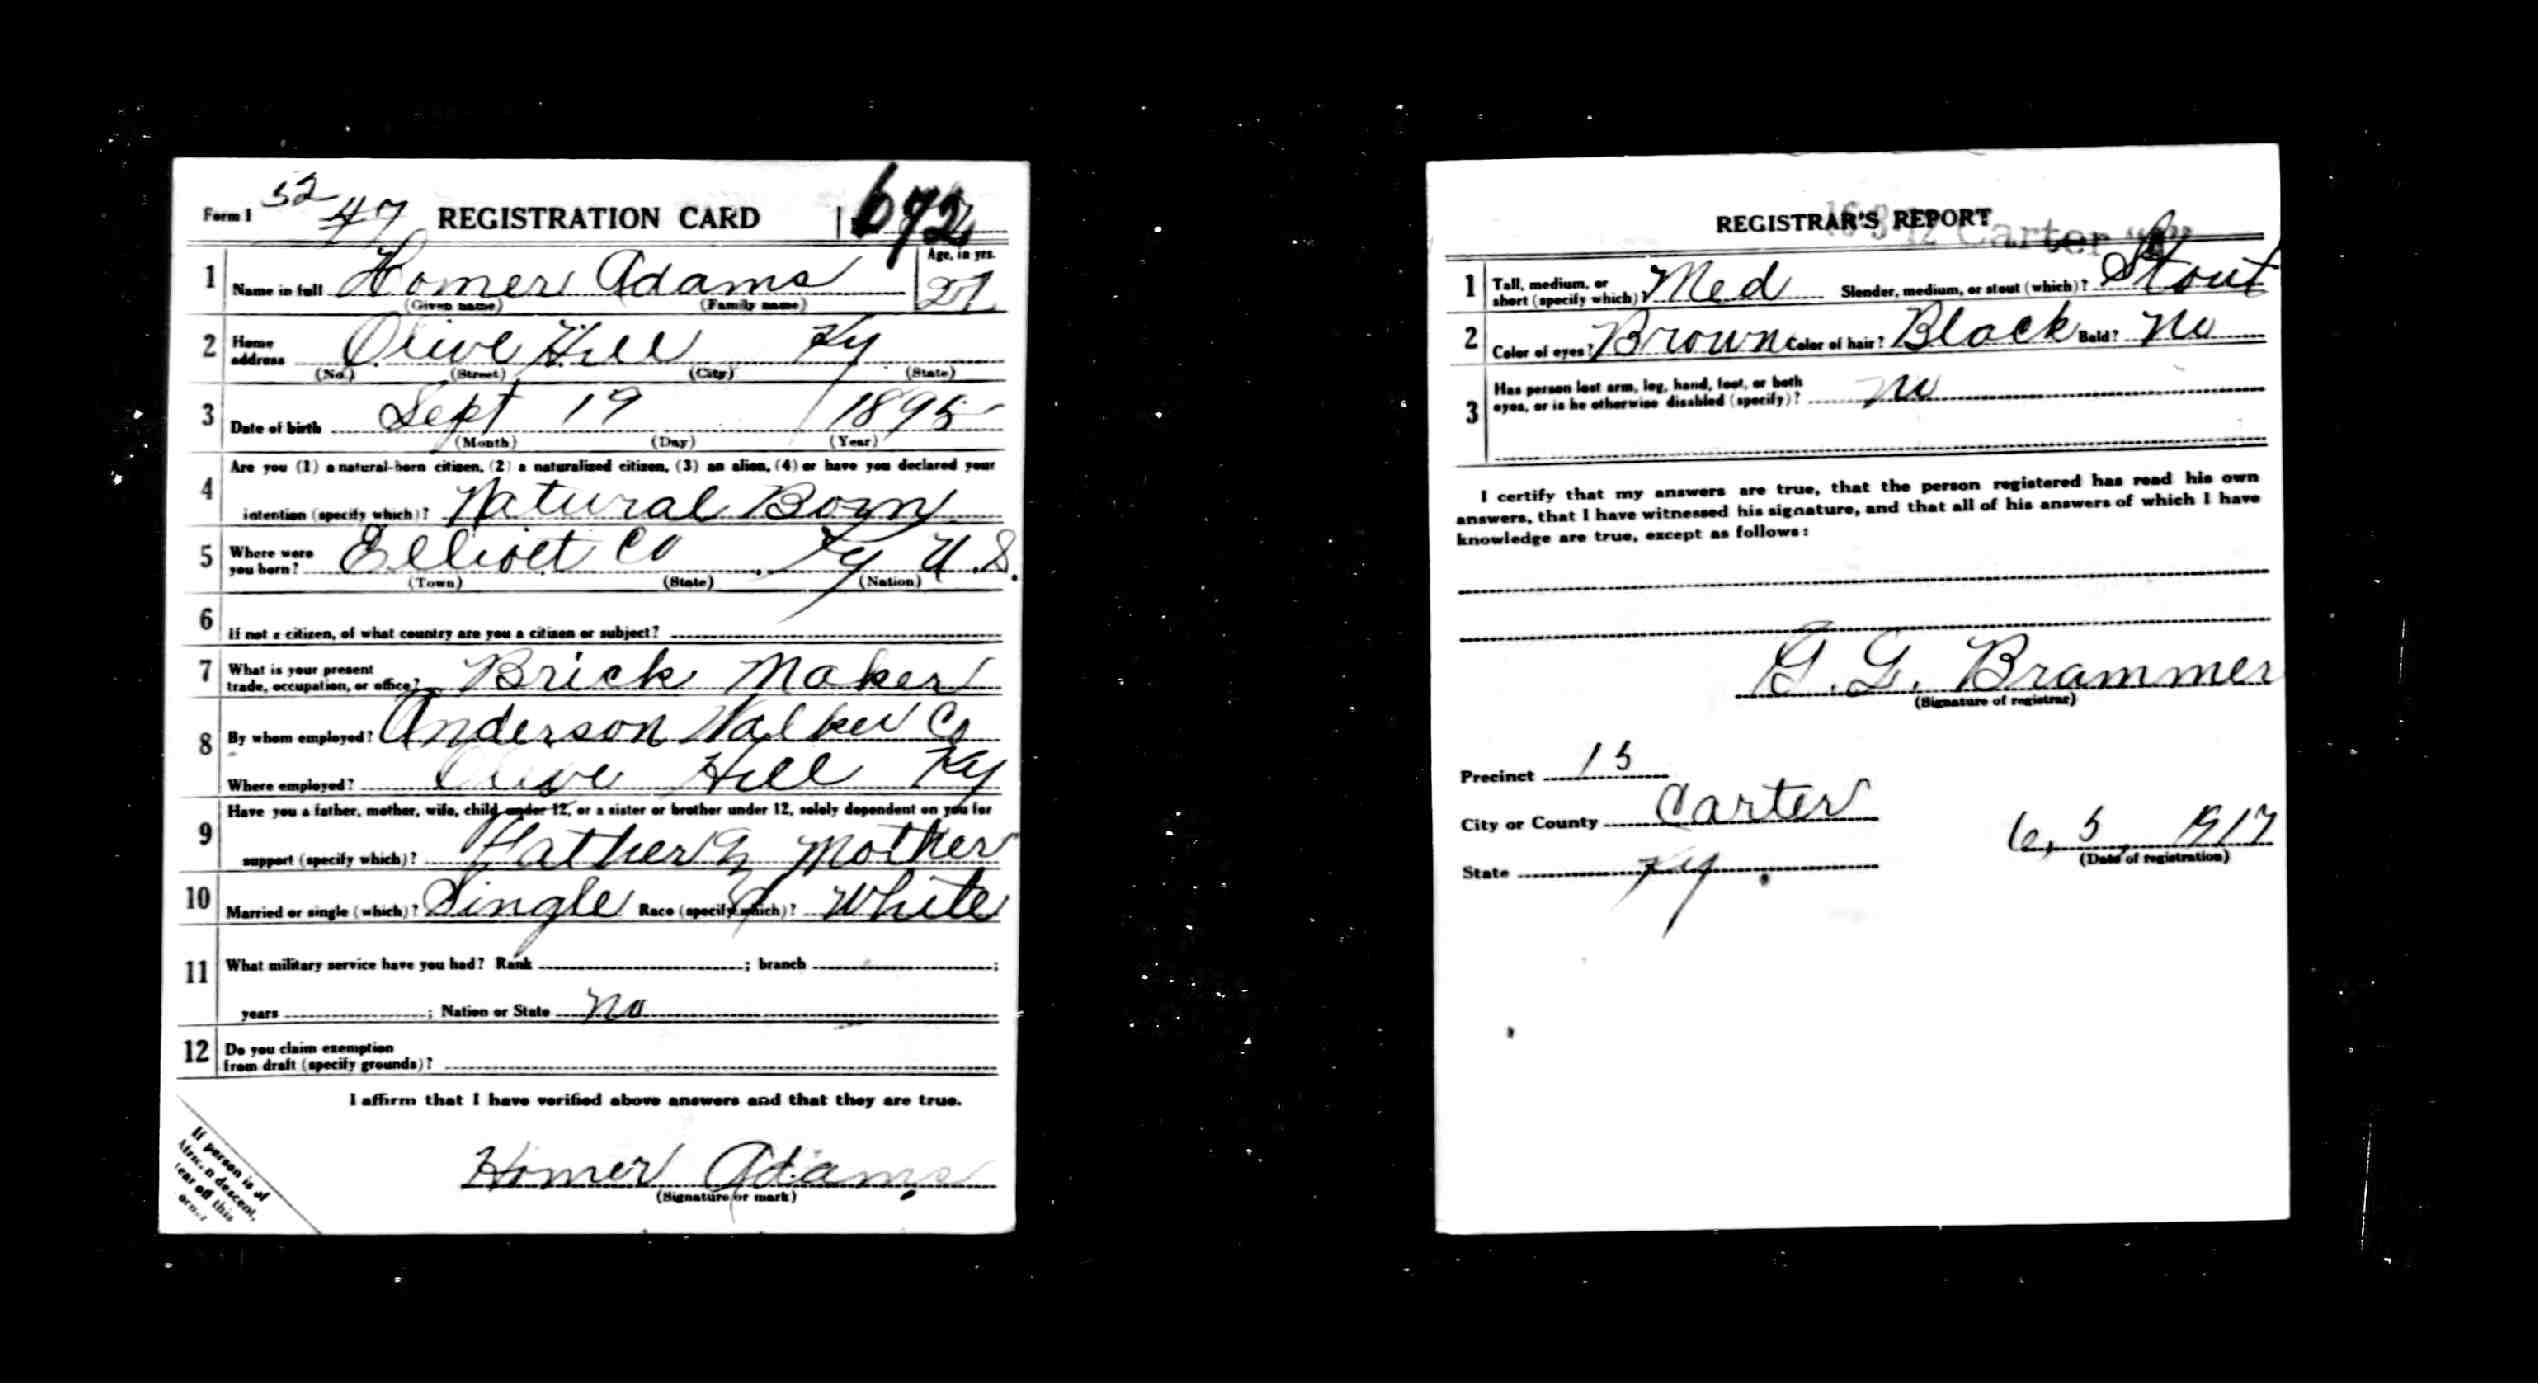 52
Form 1 47 REGISTRATION CARD 672
1 Name in full Homer Adams Age, in yrs. 21
(Given name) (Family name)
2 Home address Olive Hill Ky
(No.) (Street) (City) (State)
3 Date of birth Sept 19 1895
(Month) (Day) (Year)
4 Are you (1) a natural-born citizen, (2) a naturalized citizen, (3) an alien, (4) or have you declared your
intention (specify which)? Natural Born
5 Where were you born? Elliott Co Ky U.S.
(Town) (State) (Nation)
6 If not a citizen, of what country are you a citizen or subject?
7 What is your present
trade, occupation, or office? Brick Maker
8 By whom employed? Anderson Walker Co
Where employed? Olive Hill Ky
9 Have you a father, mother, wife, child under 12, or a sister or brother under 12, solely dependent on you for
support (specify which)? Father & Mother
10 Married or single (which)? Single Race (specify which)? White
11 What military service have you had? Rank ; branch ;
years ; Nation or State No
12 Do you claim exemption
from draft (specify grounds)?
I affirm that I have verified above answers and that they are true.
Homer Adams
(Signature or mark)
If person is of
African descent,
tear off this
corner
REGISTRAR'S REPORT
Carter
1 Tall, medium, or
short (specify which)? Med Slender, medium, or stout (which)? Stout
2 Color of eyes? Brown Color of hair? Black Bald? No
3 Has person lost arm, leg, hand, foot, or both
eyes, or is he otherwise disabled (specify)? No
I certify that my answers are true, that the person registered has read his own
answers, that I have witnessed his signature, and that all of his answers of which I have
knowledge are true, except as follows:
G. G. Brammer
(Signature of registrar)
Precinct 15
City or County Carter
State Ky
6, 5, 1917
(Date of registration)